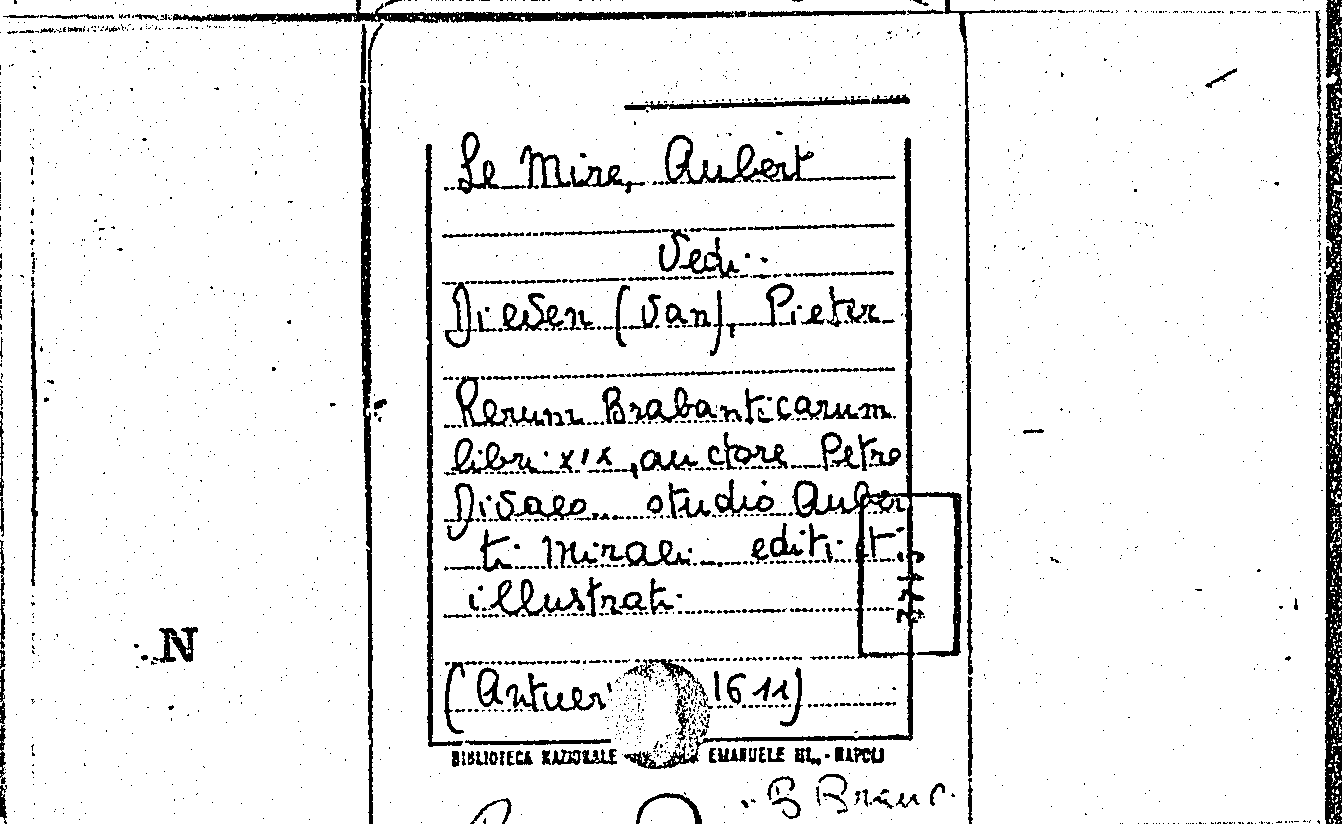 Le Mire, Aubert
Vedi:
Dieven (van), Pieter
Rerum Brabanticarum
libri XIX, auctore Petro
Divaeo... studio Auber
ti Miraei... editi et
illustrati
(Antuer 1611)
BIBLIOTECA NAZIONALE EMANUELE III. - NAPOLI
N
B Branc.